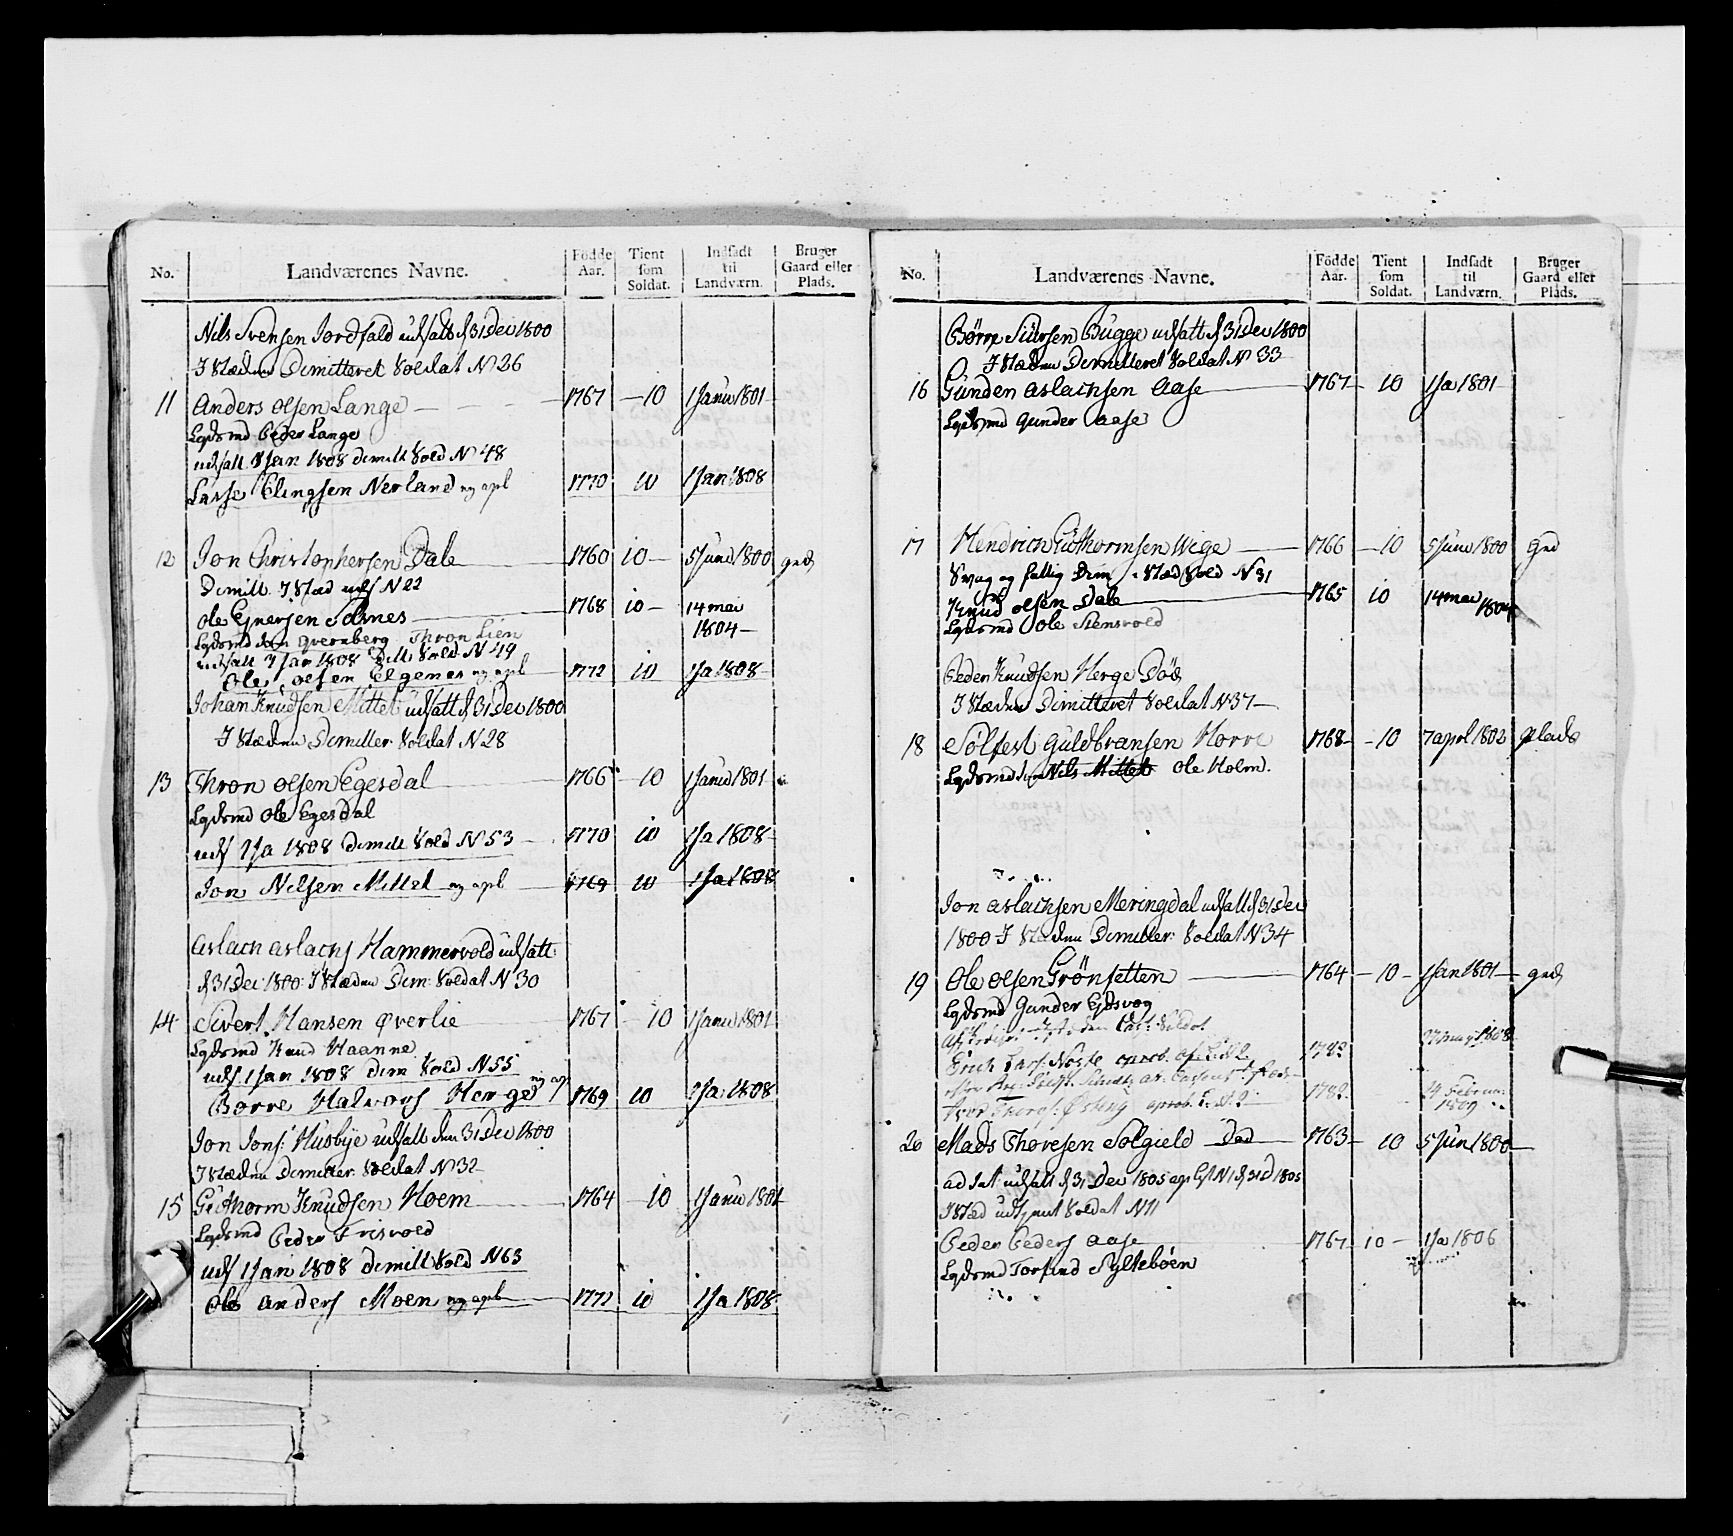 No. Landværenes Navne. Fódde Aar. Tient som Soldat. Indsadt til Landværn. Bruger Gaard eller Plads.
Nils Svensen Jordfald udsatt d 31 Dec 1800
I Stæden Dimitteret Soldat N 26
11 Anders Olsen Lange 1767 10 1 Janu 1801
Lgdsmd Peder Lange
udsatt 1 Jan 1808 dimitt Sold N 48
Lasse Elingsen Nerland ny apl 1770 10 1 Jan 1808
12 Jon Christophersen Dale 1760 10 5 Juni 1800 grd
Dimitt. I Stæd uds N 22
Ole Ejnersen Solsnes 1768 10 14 mai 1804
Lgdsmd Thron Lien
udsatt 1 Jan 1808 Ditt Sold N 49
Ole Olsen Elgenes ny apl 1772 10 1 Ja 1808
Johan Knudsen Mittet udsatt d 31 Dec 1800
I Stæden Dimitter. Soldat N 28
13 Thron Olsen Egesdal 1766 10 1 Janu 1801
Lgdsmd Ole Egesdal
uds 1 Ja 1808 dimitt Sold N 53 1770 10 1 Ja 1808
Jon Nilsen Mittet ny apl 1769 10 1 Ja 1808
Aslach Aslachs Hammervold udsatt
d 31 Dec: 1800 I Stæden Dim: Soldat N 30
14 Sivert Hansen Øverlie 1767 10 1 Janu 1801
Lgdsmd Knud Haanne
uds 1 Jan 1808 dim Sold N 55
Børre Halvors Herge ny ap 1769 10 1 Ja 1808
Jon Jons: Husbye udsatt den 31 Dec 1800
I Stæden Dimitter. Soldat N 32
15 Guthorm Knudsen Hoem 1764 10 1 Janu 1801
Lgdsmd Peder Frisvold
uds 1 Jan 1808 dimitt Sold N 63
Ole Anders Moen ny apl 1771 10 1 Ja 1808
No. Landværenes Navne. Fódde Aar. Tient som Soldat. Indsadt til Landværn. Bruger Gaard eller Plads.
Børre Siursen Bugge udsatt d 31 Dec 1800
I Stæden Dimitteret Soldat N 33
16 Gunder Aslachsen Aase 1767 10 1 Ja 1801
Lgdsmd Gunder Aase
17 Hendrich Guthormsen Wige 1766 10 5 Juni 1800 Grd
Svag og fallig Dim i Stæd Sold N 31
Knud Olsen Dale 1765 10 14 mai 1804
Lgdsmd Ole Stensvold
Peder Knudsen Herge Död
I Stæden Dimitteret Soldat N 37
18 Sølfest Guldbransen Horre 1768 10 7 apl 1802 Plads
Lgdsmd Nils Mittet Ole Holm.
Jon Aslachsen Meringdal udsatt d 31 Dec
1800 I Stæden Dimitter: Soldat N 34
19 Ole Olsen Grønsetten 1764 10 1 Jan 1801 grd
Lgdsmd Gunder Ejdsvog
1782 1808
1782 14 Februar 1809
20 Mads Thoresen Solgield Død 1763 10 5 Jun 1800
udsatt d 31 Dec 1805
I Stæd udtjent Soldat N 11
Peder Peders Aase 1767 10 1 Ja 1806
Lgdsmd Torfind Syltebøen